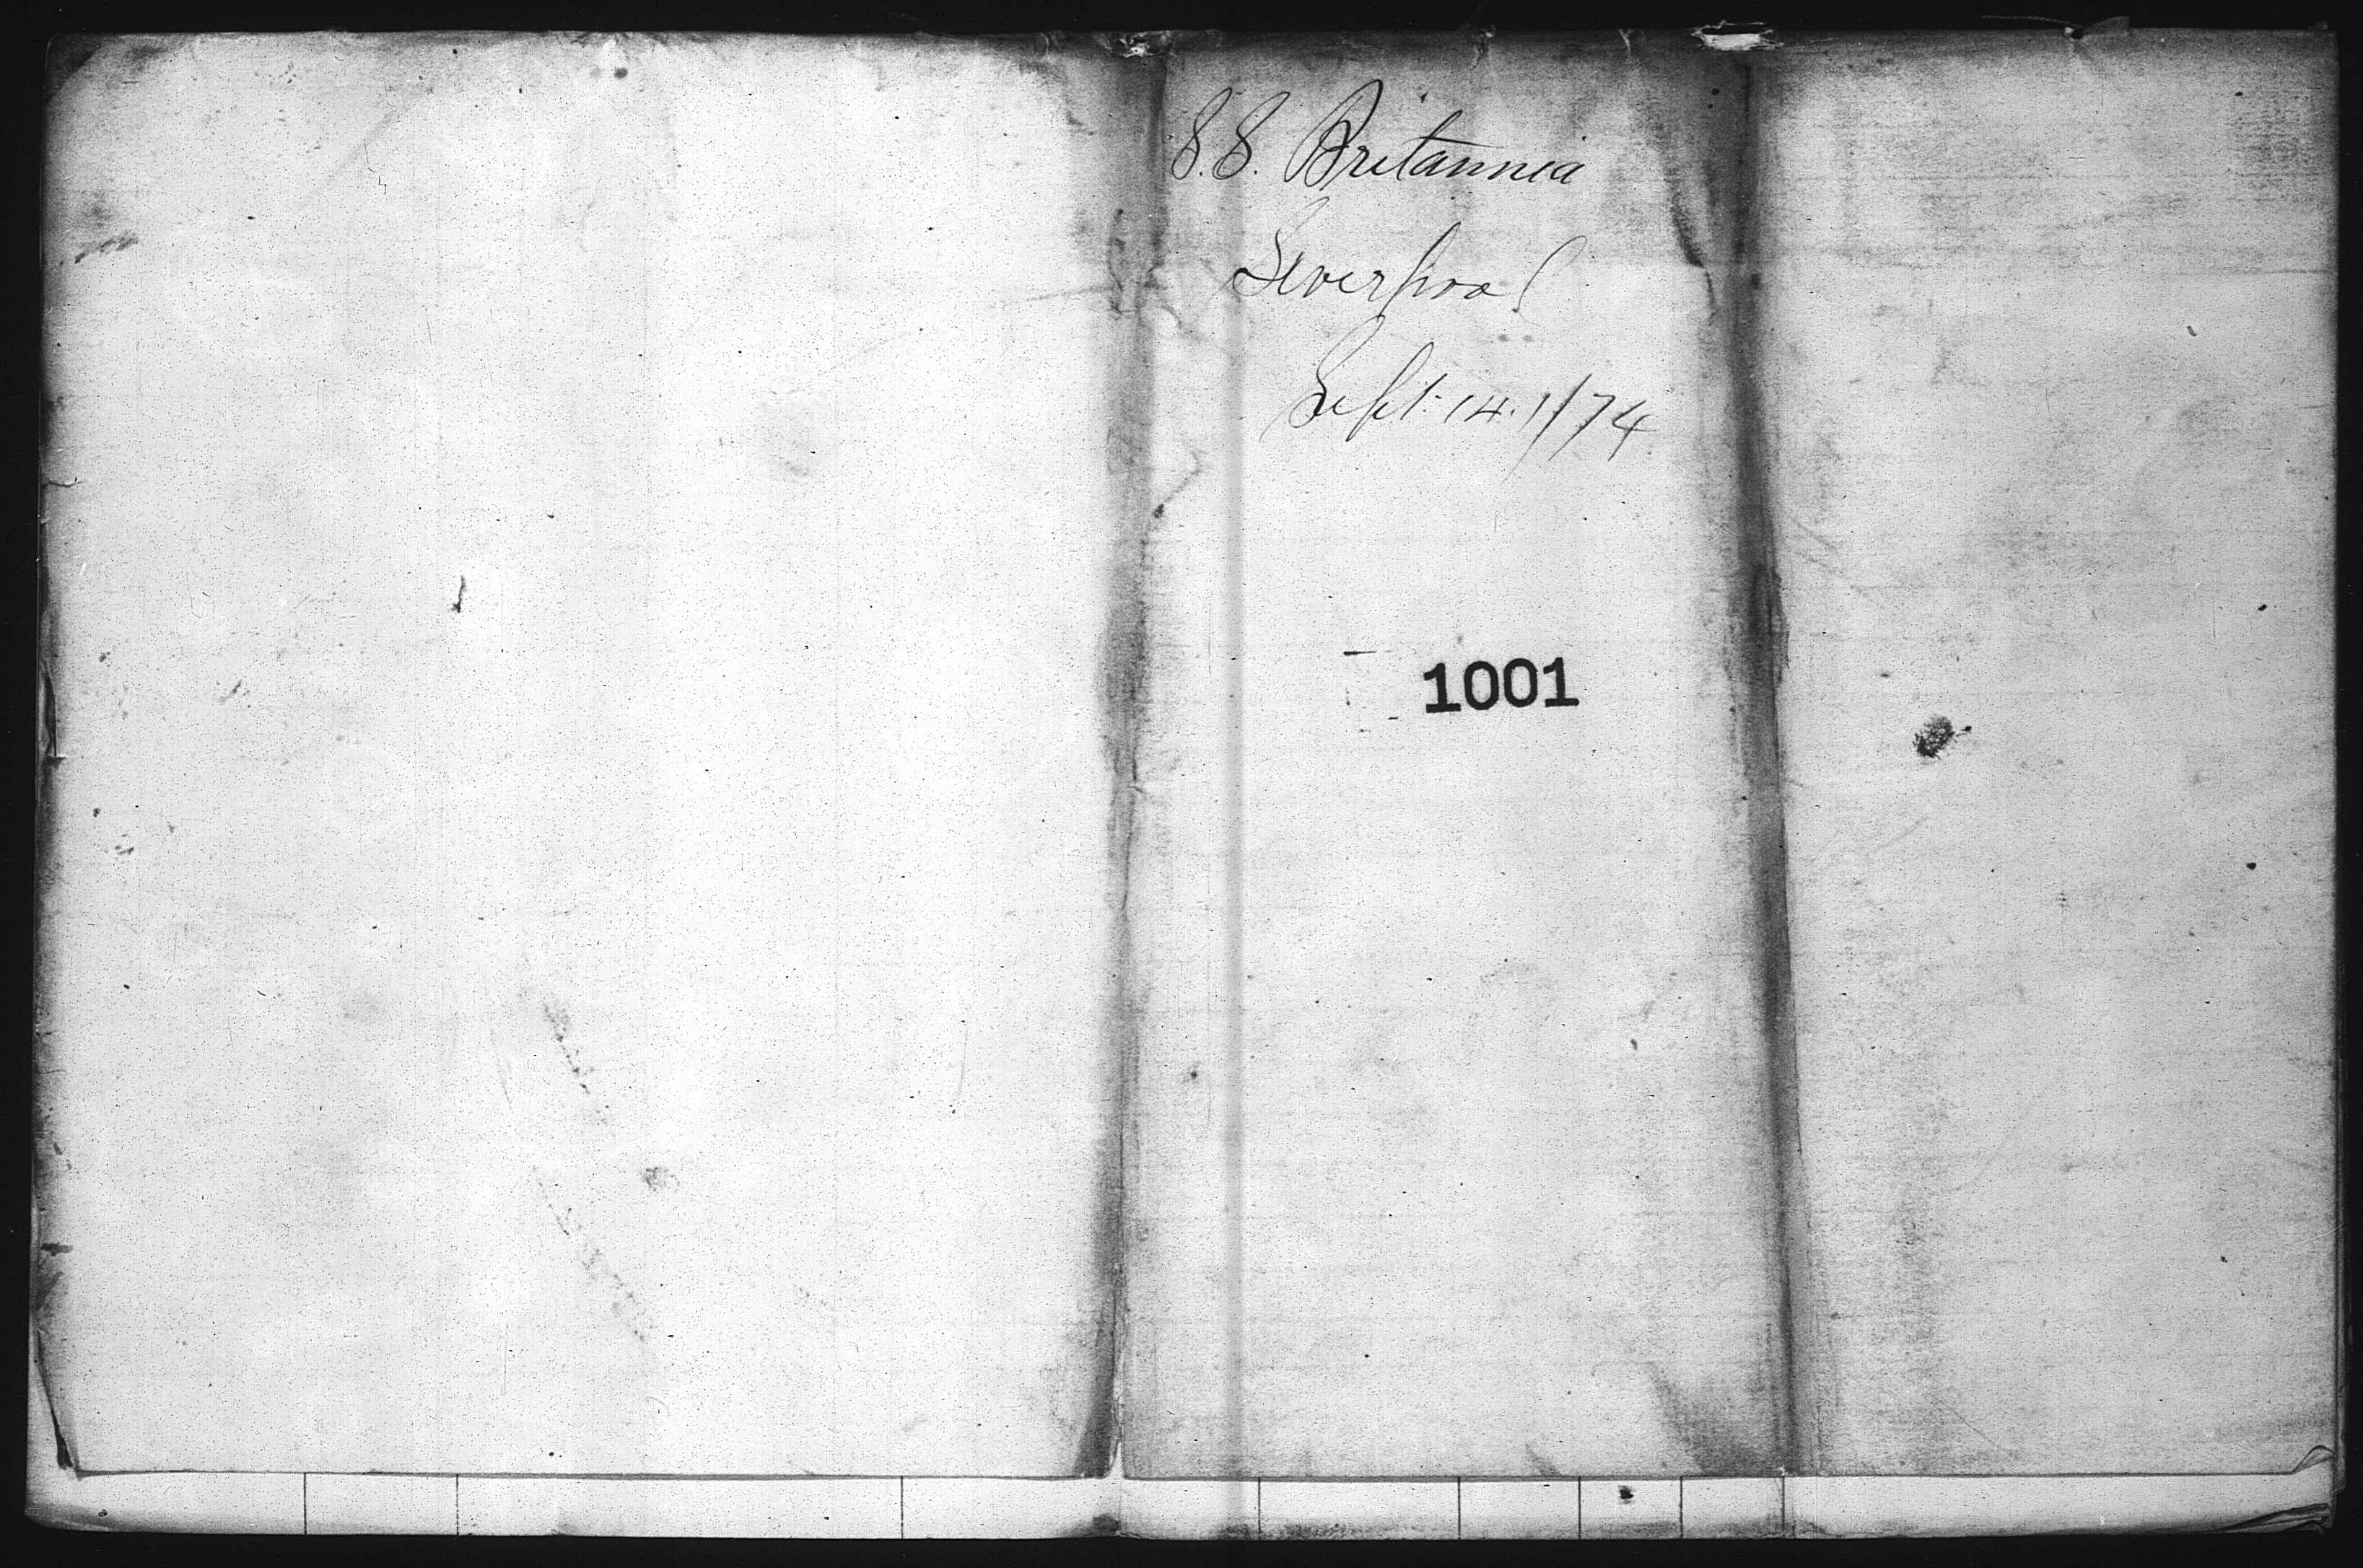 S.S. Britannia
Liverpool
Sept. 14. 1/74
1001